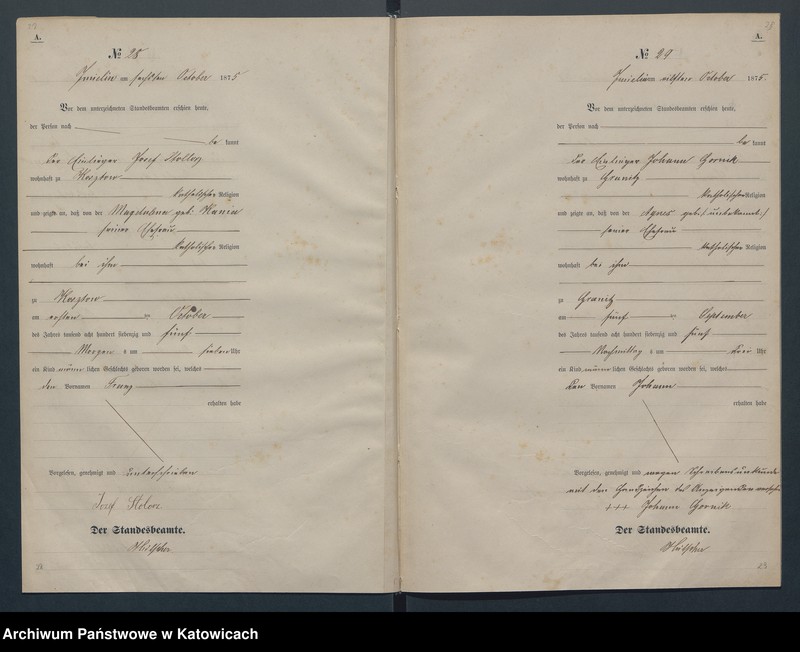 A.
№ 28
Imielin am sechsten October 1875
Vor dem unterzeichneten Standesbeamten erschien heute,
der Person nach
be kannt
der Einlieger Josef
wohnhaft zu Kosztow
katholischer Religion
und zeigte an, daß von der Magdalena geb. Kania
seiner Ehefrau
katholischer Religion
wohnhaft bei ihm
zu Kosztow
am ersten October
des Jahres tausend acht hundert siebenzig und fünf
Morgens um sieben Uhr
ein Kind männ lichen Geschlechts geboren worden sei, welches
den Vornamen Franz
erhalten habe
Vorgelesen, genehmigt und unterschrieben
Josef
Der Standesbeamte.
28
A.
№ 29
Imielin am elften October 1875.
Vor dem unterzeichneten Standesbeamten erschien heute,
der Person nach
be kannt
der Einlieger Johann Gornik
wohnhaft zu Granitz
katholischer Religion
und zeigte an, daß von der Agnes geb. /: unbekannt :/
seiner Ehefrau
katholischer Religion
wohnhaft bei ihm
zu Granitz
am fünf September
des Jahres tausend acht hundert siebenzig und fünf
Nachmittag um drei Uhr
ein Kind männ lichen Geschlechts geboren worden sei, welches
den Vornamen Johann
erhalten habe
Vorgelesen, genehmigt und wegen Schreibensunkunde
mit den Handzeichen des Anzeigenden versehen
+++ Johann Gornik
Der Standesbeamte.
Archiwum Państwowe w Katowicach